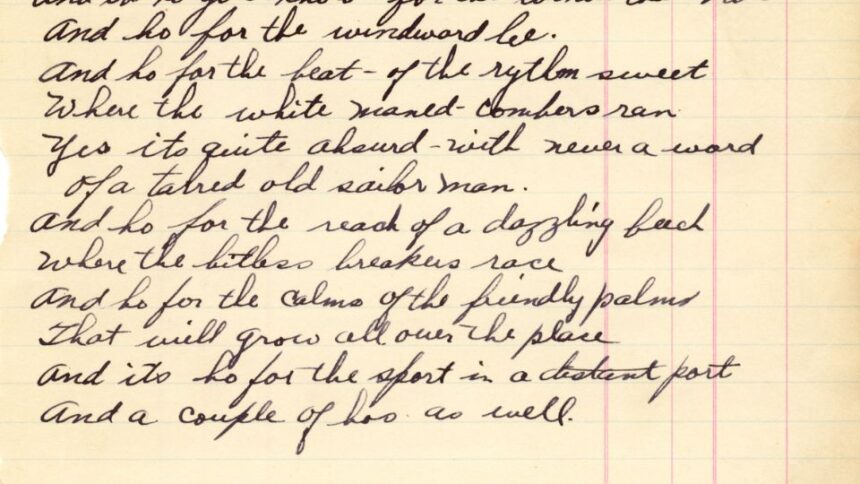 And ho for the windward lee.
And ho for the beat - of the rythm sweet
Where the white maned - combers ran
Yes its quite absurd - with never a word
of a tarred old sailor man.
And ho for the reach of a dazzling beech
Where the bitless breakers race
And ho for the calms of the friendly palms
That will grow all over the place
And its ho for the sport in a distant port
And a couple of hos as well.